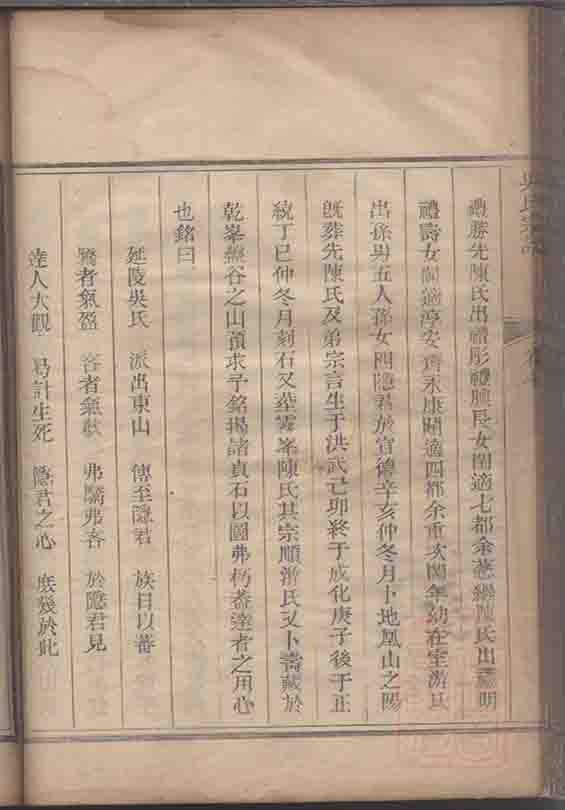 禮勝先陳氏出禮彤禮腆長女閏適七都余 繼陳氏出 明
禮壽女閏適淳安 永康閏適四都余重次閏年幼在室游氏
出孫男五人孫女四隱君於宣德辛亥仲冬月卜地鳳山之陽
既葬先陳氏及弟宗言生于洪武己卯終于成化庚子後于正
統丁巳仲冬月刻石又葬雲峯陳氏其宗順游氏又卜壽藏於
乾峯 谷之山預求予銘揭諸貞石以圖弗朽蓋達者之用心
也銘曰
延陵吳氏 派出東山 傳至隱君 族日以蕃
驕者氣盈 吝者氣歉 弗驕弗吝 於隱君見
達人大觀 曷計生死 隱君之心 庶幾於此